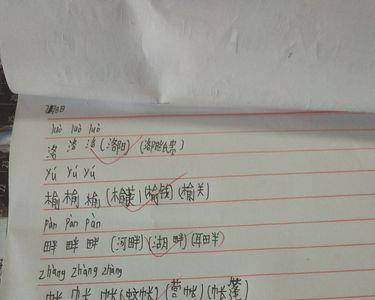 luò luò luò
洛 洛 洛 (洛阳) (洛阳纸贵)
yú yú yú
榆 榆 榆 (榆荚) (榆钱) (榆关)
pàn pàn pàn
畔 畔 畔 (河畔) (湖畔) (耳畔)
zhàng zhàng zhàng
帐 帐 帐 (蚊帐) (营帐) (帐篷)